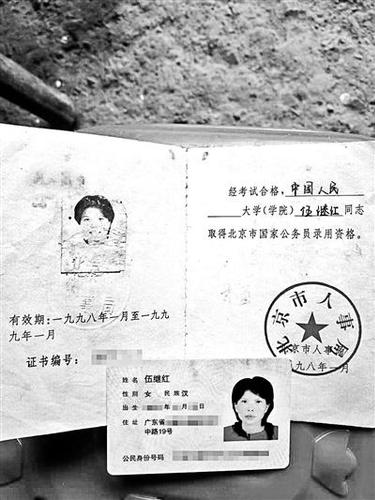 有效期:一九九八年一月至一九九
九年一月
证书编号:
经考试合格, 中国人民
大学(学院) 伍继红 同志
取得北京市国家公务员录用资格。
北京市人事局
京市人事
九八年一月
姓名 伍继红
性别 女 民族 汉
出生 年 月 日
住址 广东省
中路19号
公民身份号码